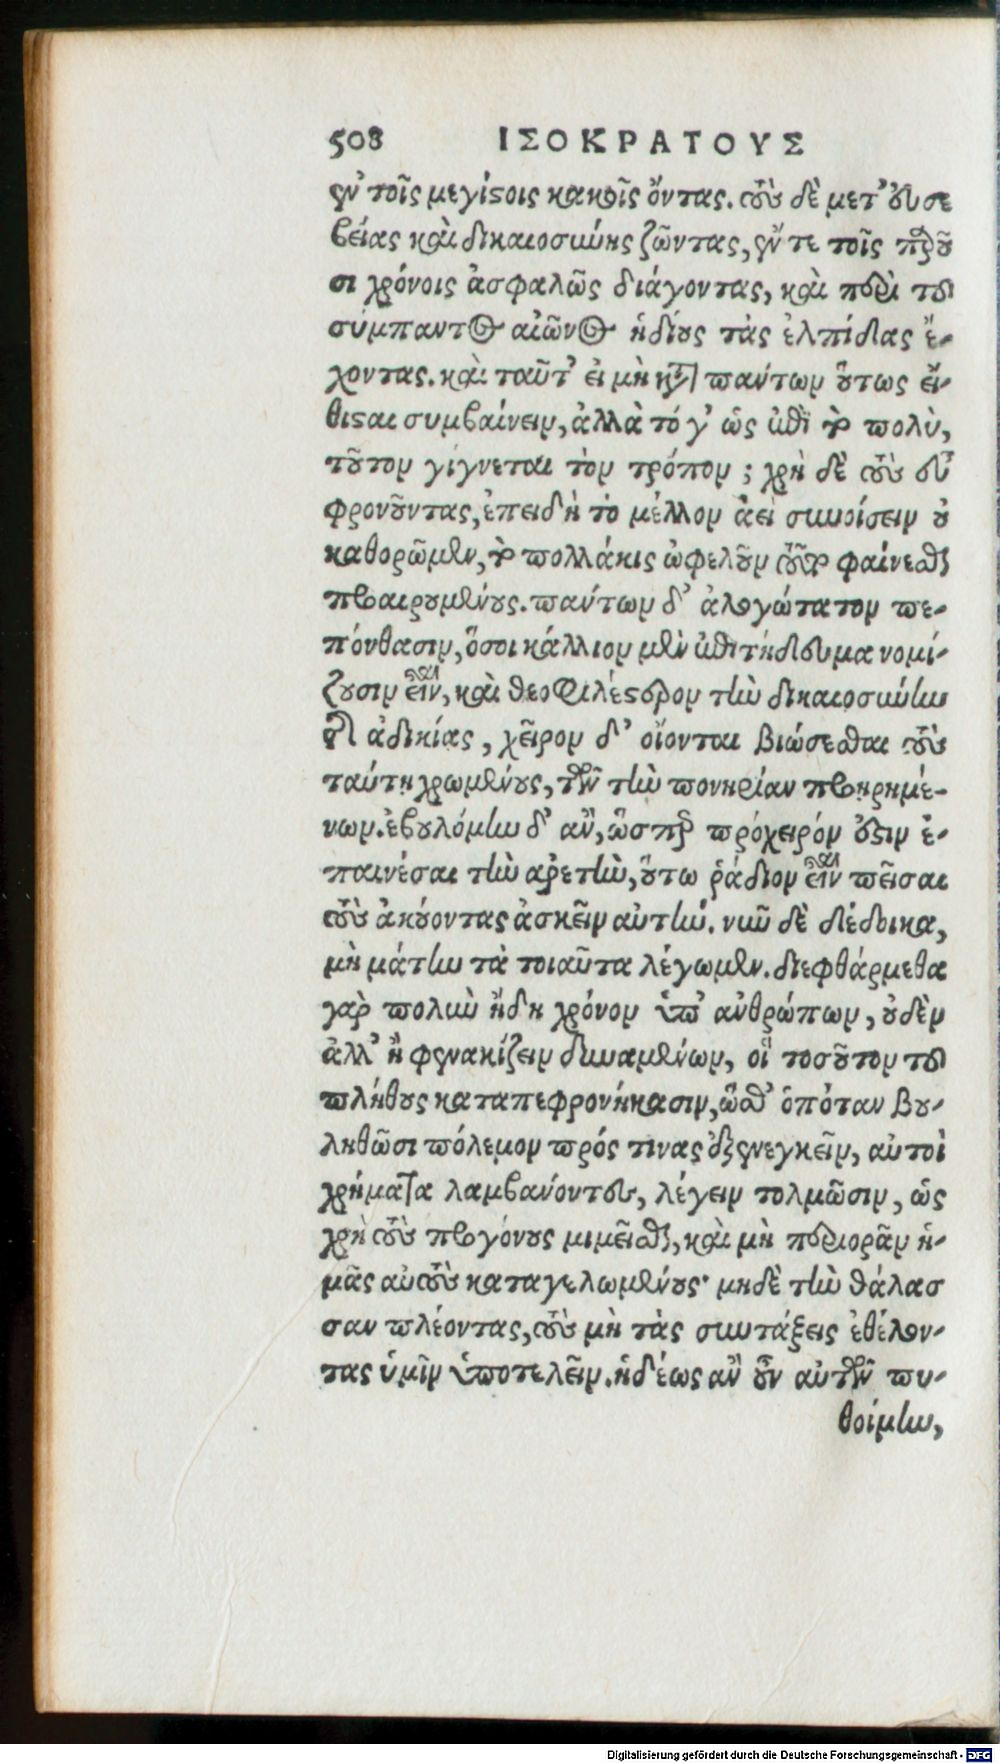 508 ΙΣΟΚΡΑΤΟΥΣ
ἐν τοῖς μεγίστοις κακοῖς ὄντας. τοὺς δὲ μετ' εὐσε
βείας καὶ δικαιοσύνης ζῶντας, ἔν τε τοῖς παροῦ
σι χρόνοις ἀσφαλῶς διάγοντας, καὶ περὶ τοῦ
σύμπαντος αἰῶνος ἡδίους τὰς ἐλπίδας ἔ-
χοντας. καὶ ταῦτ' εἰ μὴ κατὰ πάντων οὕτως εἴ-
θισται συμβαίνειν, ἀλλὰ τό γ' ὡς ἐπὶ τὸ πολὺ,
τοῦτον γίγνεται τὸν τρόπον; χρὴ δὲ τοὺς εὖ
φρονοῦντας, ἐπειδὴ τὸ μέλλον ἀεὶ συνοίσειν οὐ
καθορῶμεν, τὸ πολλάκις ὠφελοῦν τοῦτο φαίνεσθαι
προαιρουμένους. πάντων δ' ἀλογώτατον πε-
πόνθασιν, ὅσοι κάλλιον μὲν ἐπιτήδευμα νομί-
ζουσιν εἶναι, καὶ θεοφιλέστερον τὴν δικαιοσύνην
τῆς ἀδικίας, χεῖρον δ' οἴονται βιώσεσθαι τοὺς
ταύτῃ χρωμένους, τῶν τὴν πονηρίαν προῃρημέ-
νων. ἐβουλόμην δ' ἂν, ὥσπερ πρόχειρόν ἐστιν ἐ-
παινέσαι τὴν ἀρετὴν, οὕτω ῥάδιον εἶναι πεῖσαι
τοὺς ἀκούοντας ἀσκεῖν αὐτήν. νῦν δὲ δέδοικα,
μὴ μάτην τὰ τοιαῦτα λέγωμεν. διεφθάρμεθα
γὰρ πολὺν ἤδη χρόνον ὑπ' ἀνθρώπων, οὐδὲν
ἀλλ' ἢ φενακίζειν δυναμένων, οἳ τοσοῦτον τοῦ
πλήθους καταπεφρονήκασιν, ὥσθ' ὁπόταν βου-
ληθῶσι πόλεμον πρός τινας ἐξενεγκεῖν, αὐτοὶ
χρήματα λαμβάνοντες, λέγειν τολμῶσιν, ὡς
χρὴ τοὺς προγόνους μιμεῖσθαι, καὶ μὴ περιορᾶν ἡ-
μᾶς αὐτοὺς καταγελωμένους· μηδὲ τὴν θάλασ
σαν πλέοντας, τοὺς μὴ τὰς συντάξεις ἐθέλον-
τας ὑμῖν ὑποτελεῖν. ἡδέως ἂν οὖν αὐτῶν πυ-
θοίμην,
Digitalisierung gefördert durch die Deutsche Forschungsgemeinschaft - DFG